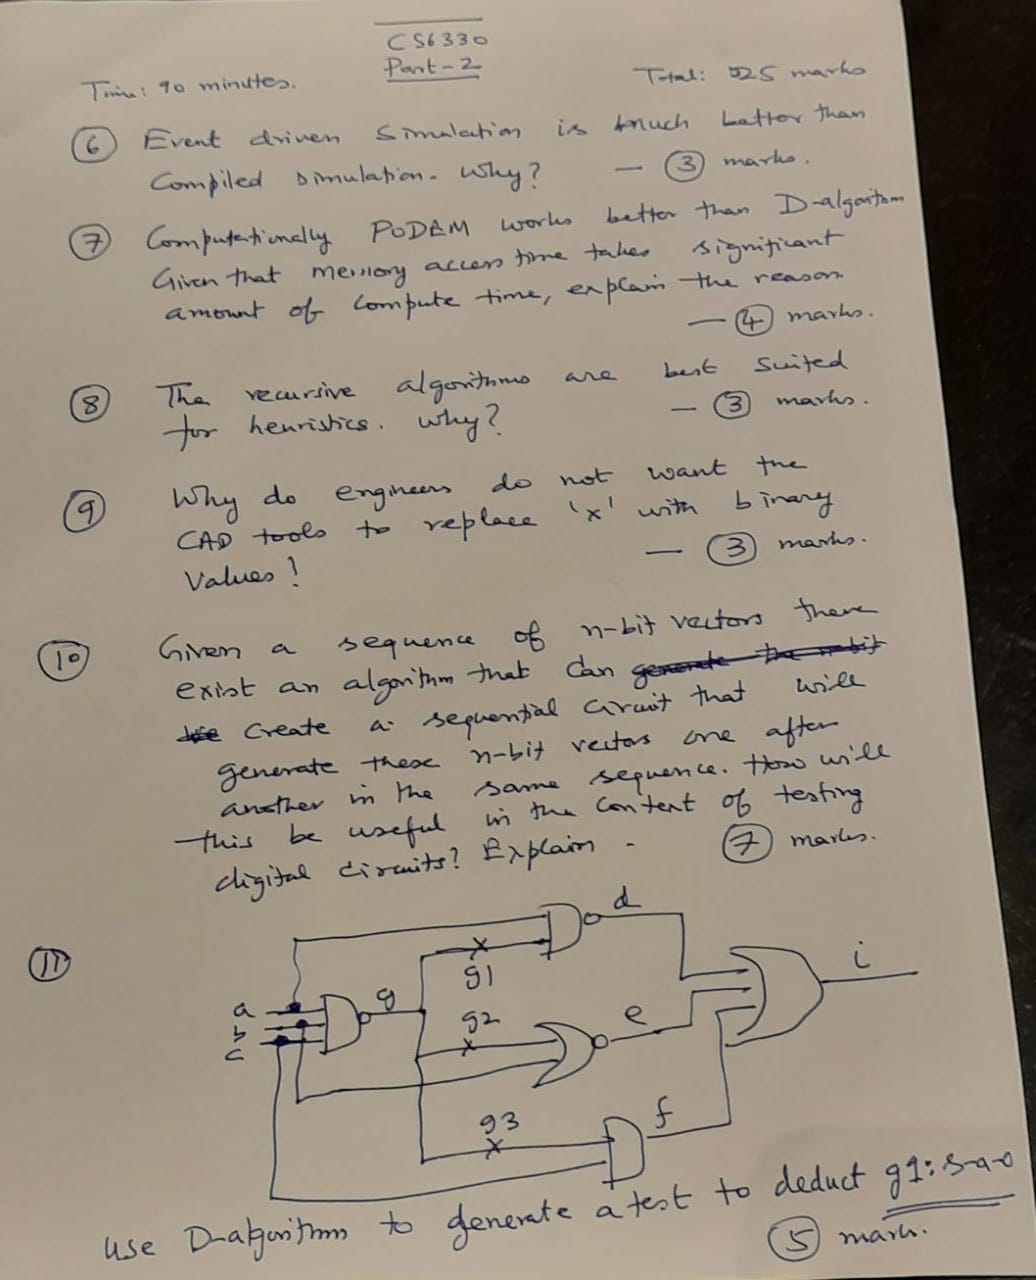 CS6330
Part-2
Time: 90 minutes. Total: 25 marks
6 Event driven Simulation is much better than
Compiled simulation. Why? - 3 marks.
7 Computationally PODEM works better than D-algoritom
Given that memory access time takes significant
amount of compute time, explain the reason
- 4 marks.
8 The recursive algorithms are best suited
for heuristics. Why? - 3 marks.
9 Why do engineers do not want the
CAD tools to replace 'x' with binary
Values! - 3 marks.
10 Given a sequence of n-bit vectors there
exist an algorithm that can generate the n-bit
create a sequential circuit that will
generate these n-bit vectors one after
another in the same sequence. How will
this be useful in the context of testing
digital circuits? Explain. 7 marks.
11
d
g1
i
a
b
c
g
g2
e
g3
f
Use D-algorithm to generate a test to deduct g1: s-a-0
5 mark.